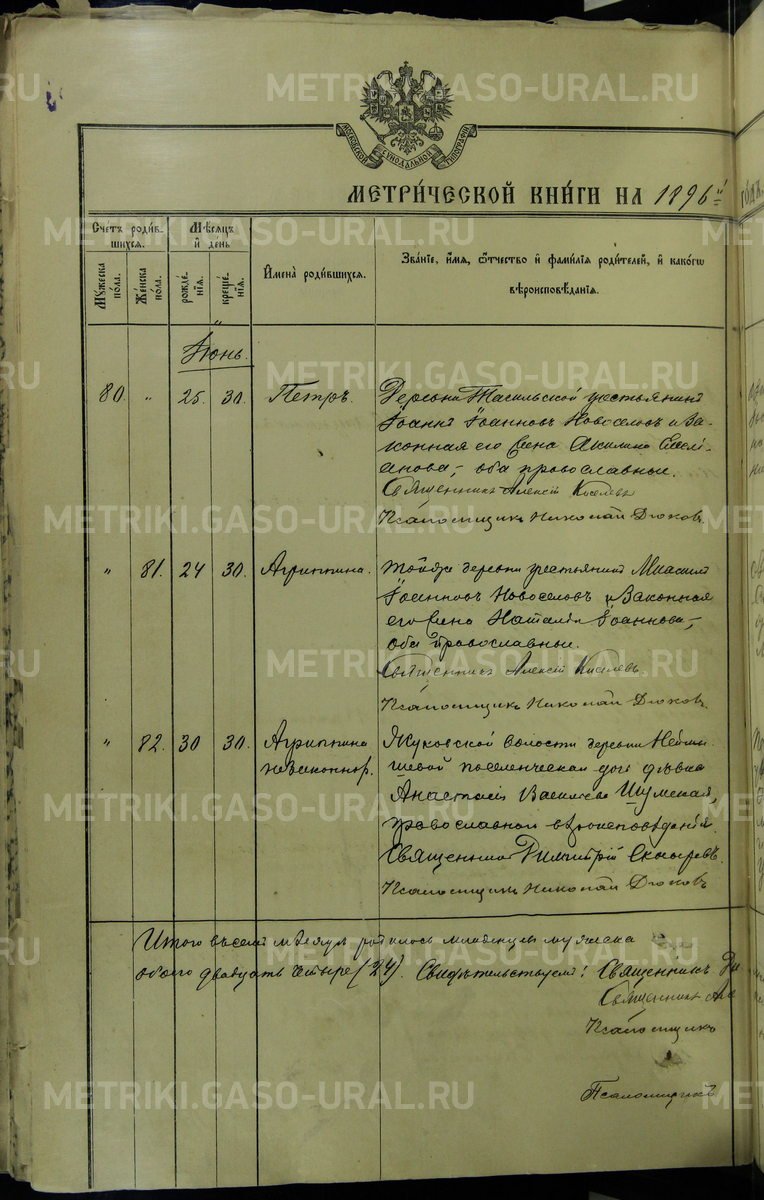 МОСКОВСКОЙ СѴНОДАЛЬНОЙ ТИПОГРАФІИ
МЕТРИ́ЧЕСКОЙ КНИ́ГИ НА 1896й
Сче́тъ роди́в-
шихся.
Му́жеска по́ла.
Же́нска по́ла.
Мѣ́сяцъ
и҆ де́нь
рожде́-
нїѧ.
креще́-
нїѧ.
И҆мена̀ роди́вшихсѧ.
Зва́нїе, и҆́мѧ, ѻ҆́тчество и҆ фами́лїѧ роди́телей, и҆ како́гѡ
вѣроисповѣ́данїѧ.
Іюнь.
80. „ 25. 30. Петръ. Деревни крестьянинъ
Іоаннъ Іоанновъ Новоселовъ и за-
конная его жена Акилина Емелi-
анова, оба православные.
Священникъ Алексій Киселевъ
Псаломщикъ Николай Дюковъ.
„ 81. 24 30. Агриппина. Тойже деревни крестьянинъ
Іоанновъ Новоселовъ и законная
его жена Наталія Іоаннова,
оба православные.
Священникъ Алексій Киселевъ
Псаломщикъ Николай Дюковъ.
„ 82. 30 30. Агриппина Жуковской волости деревни
незаконнор. шевой поселенческая дочь дѣвка
Анастасія Васильева Шумская,
православнаго вѣроисповѣданія.
Священникъ Димитрій
Псаломщикъ Николай Дюковъ
Итого въ семъ мѣсяцѣ родилось младенцевъ мужеска
обоего двадцать четыре (24). Свидѣтельствуемъ: Священникъ Ди
Священникъ Але
Псаломщикъ
Псаломщикъ
METRIKI.GASO-URAL.RU